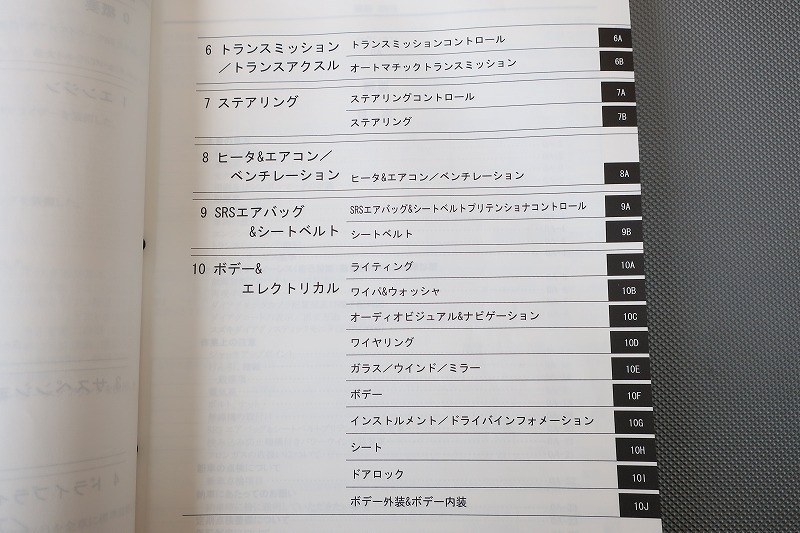 6 トランスミッション トランスミッションコントロール 6A
／トランスアクスル オートマチックトランスミッション 6B
7 ステアリング ステアリングコントロール 7A
ステアリング 7B
8 ヒータ&エアコン／
ベンチレーション ヒータ&エアコン／ベンチレーション 8A
9 SRSエアバッグ SRSエアバッグ&シートベルトプリテンショナコントロール 9A
&シートベルト シートベルト 9B
10 ボデー& ライティング 10A
エレクトリカル ワイパ&ウォッシャ 10B
オーディオビジュアル&ナビゲーション 10C
ワイヤリング 10D
ガラス／ウインド／ミラー 10E
ボデー 10F
インストルメント／ドライバインフォメーション 10G
シート 10H
ドアロック 10I
ボデー外装&ボデー内装 10J